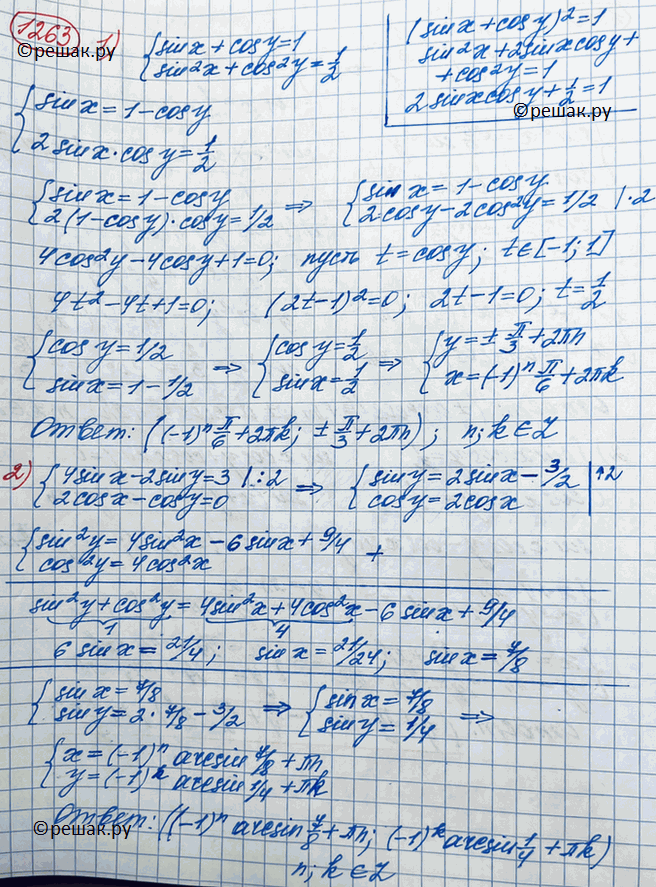 1263 1) { sin x + cos y = 1
{ sin²x + cos²y = 1/2
©решак.ру
(sin x + cos y)² = 1
sin²x + 2 sin x cos y +
+ cos²y = 1
2 sin x cos y + 1/2 = 1
©решак.ру
{ sin x = 1 - cos y
{ 2 sin x · cos y = 1/2
{ sin x = 1 - cos y
{ 2(1 - cos y) · cos y = 1/2 ⇒ { sin x = 1 - cos y
{ 2 cos y - 2 cos²y = 1/2 | · 2
4 cos²y - 4 cos y + 1 = 0; пусть t = cos y; t ∈ [-1; 1]
4t² - 4t + 1 = 0; (2t - 1)² = 0; 2t - 1 = 0; t = 1/2
{ cos y = 1/2
{ sin x = 1 - 1/2 ⇒ { cos y = 1/2
{ sin x = 1/2 ⇒ { y = ± π/3 + 2πn
{ x = (-1)ⁿ π/6 + 2πk
Ответ: ((-1)ⁿ π/6 + 2πk; ± π/3 + 2πn); n; k ∈ Z
2) { 4 sin x - 2 sin y = 3 | : 2
{ 2 cos x - cos y = 0 ⇒ { sin y = 2 sin x - 3/2
{ cos y = 2 cos x | ↑2
{ sin²y = 4 sin²x - 6 sin x + 9/4
{ cos²y = 4 cos²x +
sin²y + cos²y = 4 sin²x + 4 cos²x - 6 sin x + 9/4
1 4
6 sin x = 21/4; sin x = 21/24; sin x = 7/8
{ sin x = 7/8
{ sin y = 2 · 7/8 - 3/2 ⇒ { sin x = 7/8
{ sin y = 1/4 ⇒
{ x = (-1)ⁿ arcsin 7/8 + πn
{ y = (-1)ᵏ arcsin 1/4 + πk
©решак.ру
Ответ: ((-1)ⁿ arcsin 7/8 + πn; (-1)ᵏ arcsin 1/4 + πk)
n; k ∈ Z